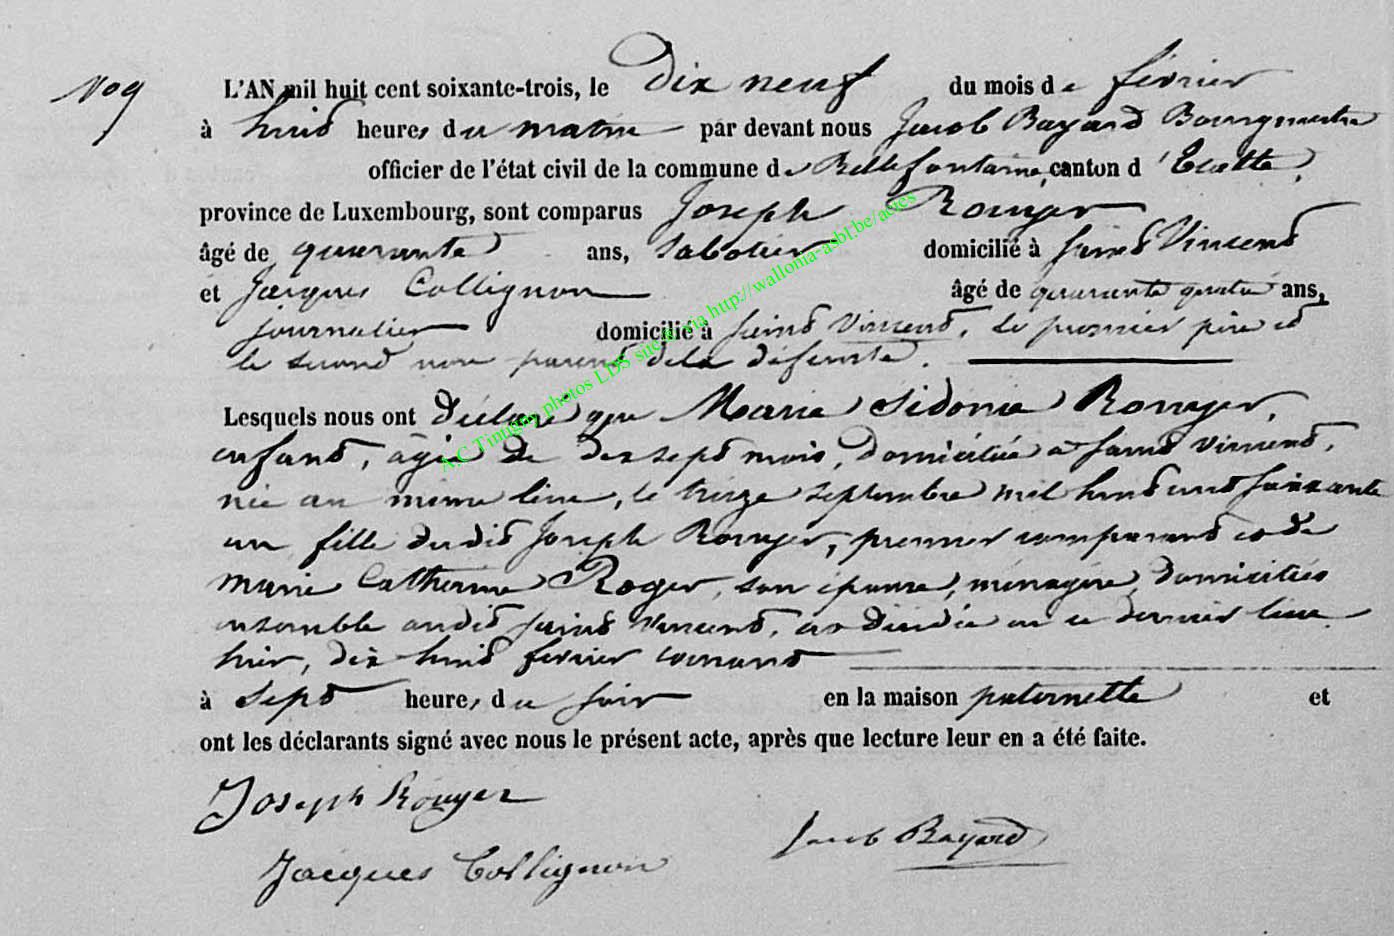 No 9
L'AN mil huit cent soixante-trois, le Dix neuf du mois de février
à huit heures du matin par devant nous Jacob Bayard Bourgmestre
officier de l'état civil de la commune de Bellefontaine, canton d'Etalle,
province de Luxembourg, sont comparus Joseph Rouyer
âgé de quarante ans, sabotier domicilié à Saint Vincent
et Jacques Collignon âgé de quarante quatre ans,
journalier domicilié à Saint Vincent, le premier père et
le second non parent de la défunte.
Lesquels nous ont déclaré que Marie Sidonie Rouyer,
enfant, âgée de dix sept mois, domiciliée à Saint Vincent,
née au même lieu, le treize septembre mil huit cent soixante
un fille dudit Joseph Rouyer, premier comparant et de
Marie Catherine Roger, son épouse, ménagère, domiciliés
ensemble audit Saint Vincent, est décédée en ce dernier lieu
hier, dix huit fevrier courant
à sept heures du soir en la maison paternelle et
ont les déclarants signé avec nous le présent acte, après que lecture leur en a été faite.
Joseph Rouyer
Jacob Bayard
Jacques Collignon
A.C.Tintigny photos LDS suc via http://wallonia-asbl.be/actes